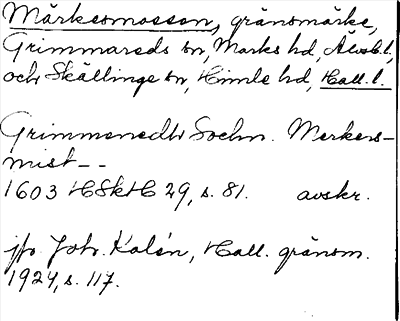 Märkesmossen, gränsmärke,
Grimmareds sn, Marks hd, Älvsb. l.,
och Skällinge sn, Himle hd, Hall. l.
Grimmeredtz Sochn. Merkers-
mist - -
1603 HSkH 29, s. 81. avskr.
jfr Joh. Kalén, Hall. gränsm.
1924, s. 117.